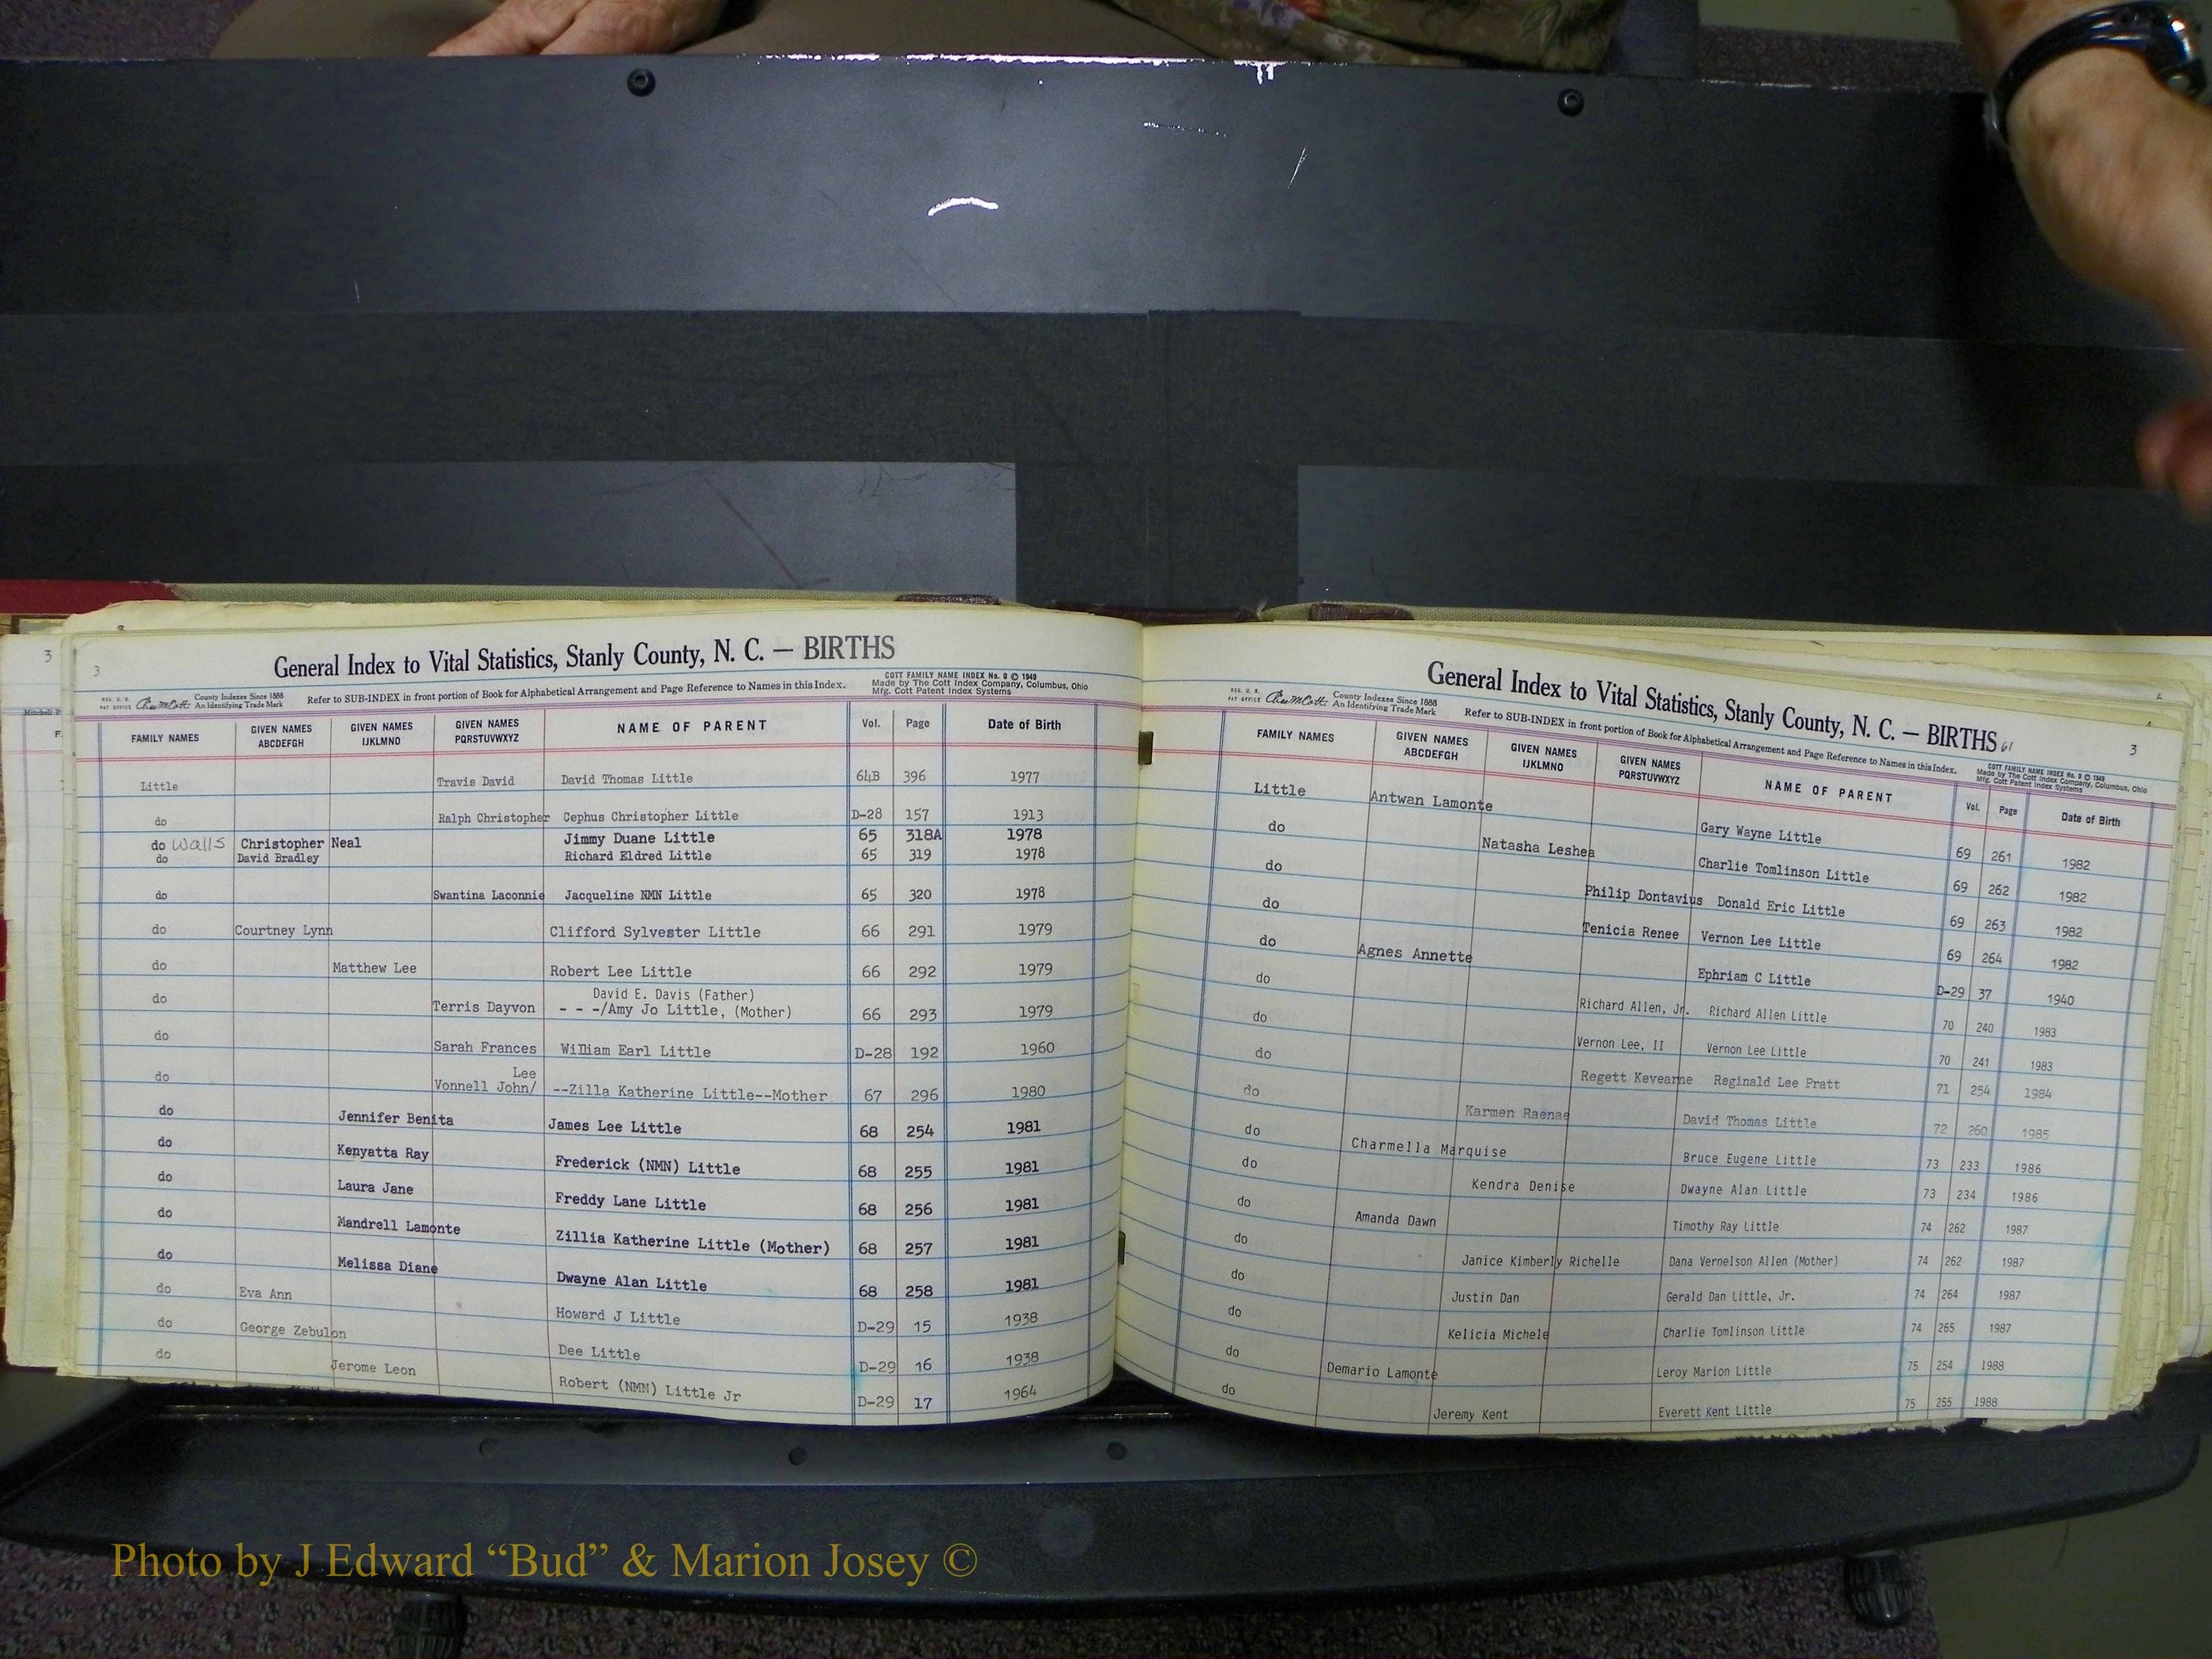 3
General Index to Vital Statistics, Stanly County, N. C. — BIRTHS
REG. U. S. PAT OFFICE County Indexes Since 1888 An Identifying Trade Mark Refer to SUB-INDEX in front portion of Book for Alphabetical Arrangement and Page Reference to Names in this Index. COTT FAMILY NAME INDEX No. 9 © 1949
Made by The Cott Index Company, Columbus, Ohio
Mfg. Cott Patent Index Systems
FAMILY NAMES GIVEN NAMES ABCDEFGH GIVEN NAMES IJKLMNO GIVEN NAMES PQRSTUVWXYZ NAME OF PARENT Vol. Page Date of Birth
Little Travis David David Thomas Little 64B 396 1977
do Ralph Christopher Cephus Christopher Little D-28 157 1913
do Walls Christopher Neal Jimmy Duane Little 65 318A 1978
do David Bradley Richard Eldred Little 65 319 1978
do Swantina Laconnie Jacqueline NMN Little 65 320 1978
do Courtney Lynn Clifford Sylvester Little 66 291 1979
do Matthew Lee Robert Lee Little 66 292 1979
David E. Davis (Father)
do Terris Dayvon - - -/Amy Jo Little, (Mother) 66 293 1979
do Sarah Frances William Earl Little D-28 192 1960
Lee
do Vonnell John/ --Zilla Katherine Little--Mother 67 296 1980
do Jennifer Benita James Lee Little 68 254 1981
do Kenyatta Ray Frederick (NMN) Little 68 255 1981
do Laura Jane Freddy Lane Little 68 256 1981
do Mandrell Lamonte Zillia Katherine Little (Mother) 68 257 1981
do Melissa Diane Dwayne Alan Little 68 258 1981
do Eva Ann Howard J Little D-29 15 1938
do George Zebulon Dee Little D-29 16 1938
do Jerome Leon Robert (NMN) Little Jr D-29 17 1964
General Index to Vital Statistics, Stanly County, N. C. — BIRTHS 61 3
REG. U. S. PAT OFFICE County Indexes Since 1888 An Identifying Trade Mark Refer to SUB-INDEX in front portion of Book for Alphabetical Arrangement and Page Reference to Names in this Index. COTT FAMILY NAME INDEX No. 9 © 1949
Made by The Cott Index Company, Columbus, Ohio
Mfg. Cott Patent Index Systems
FAMILY NAMES GIVEN NAMES ABCDEFGH GIVEN NAMES IJKLMNO GIVEN NAMES PQRSTUVWXYZ NAME OF PARENT Vol. Page Date of Birth
Little Antwan Lamonte Gary Wayne Little 69 261 1982
do Natasha Leshea Charlie Tomlinson Little 69 262 1982
do Philip Dontavius Donald Eric Little 69 263 1982
do Tenicia Renee Vernon Lee Little 69 264 1982
do Agnes Annette Ephriam C Little D-29 37 1940
do Richard Allen, Jr. Richard Allen Little 70 240 1983
do Vernon Lee, II Vernon Lee Little 70 241 1983
do Regett Kevearne Reginald Lee Pratt 71 254 1984
do Karmen Raenae David Thomas Little 72 260 1985
do Charmella Marquise Bruce Eugene Little 73 233 1986
do Kendra Denise Dwayne Alan Little 73 234 1986
do Amanda Dawn Timothy Ray Little 74 262 1987
do Janice Kimberly Richelle Dana Vernelson Allen (Mother) 74 262 1987
do Justin Dan Gerald Dan Little, Jr. 74 264 1987
do Kelicia Michele Charlie Tomlinson Little 74 265 1987
do Demario Lamonte Leroy Marion Little 75 254 1988
do Jeremy Kent Everett Kent Little 75 255 1988
Photo by J Edward “Bud” & Marion Josey ©